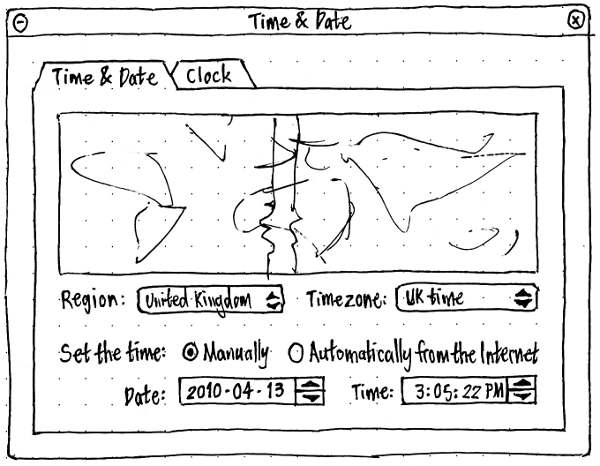 Time & Date
Time & Date Clock
Region: United Kingdom Timezone: UK time
Set the time: Manually Automatically from the Internet
Date: 2010-04-13 Time: 3:05:22 PM